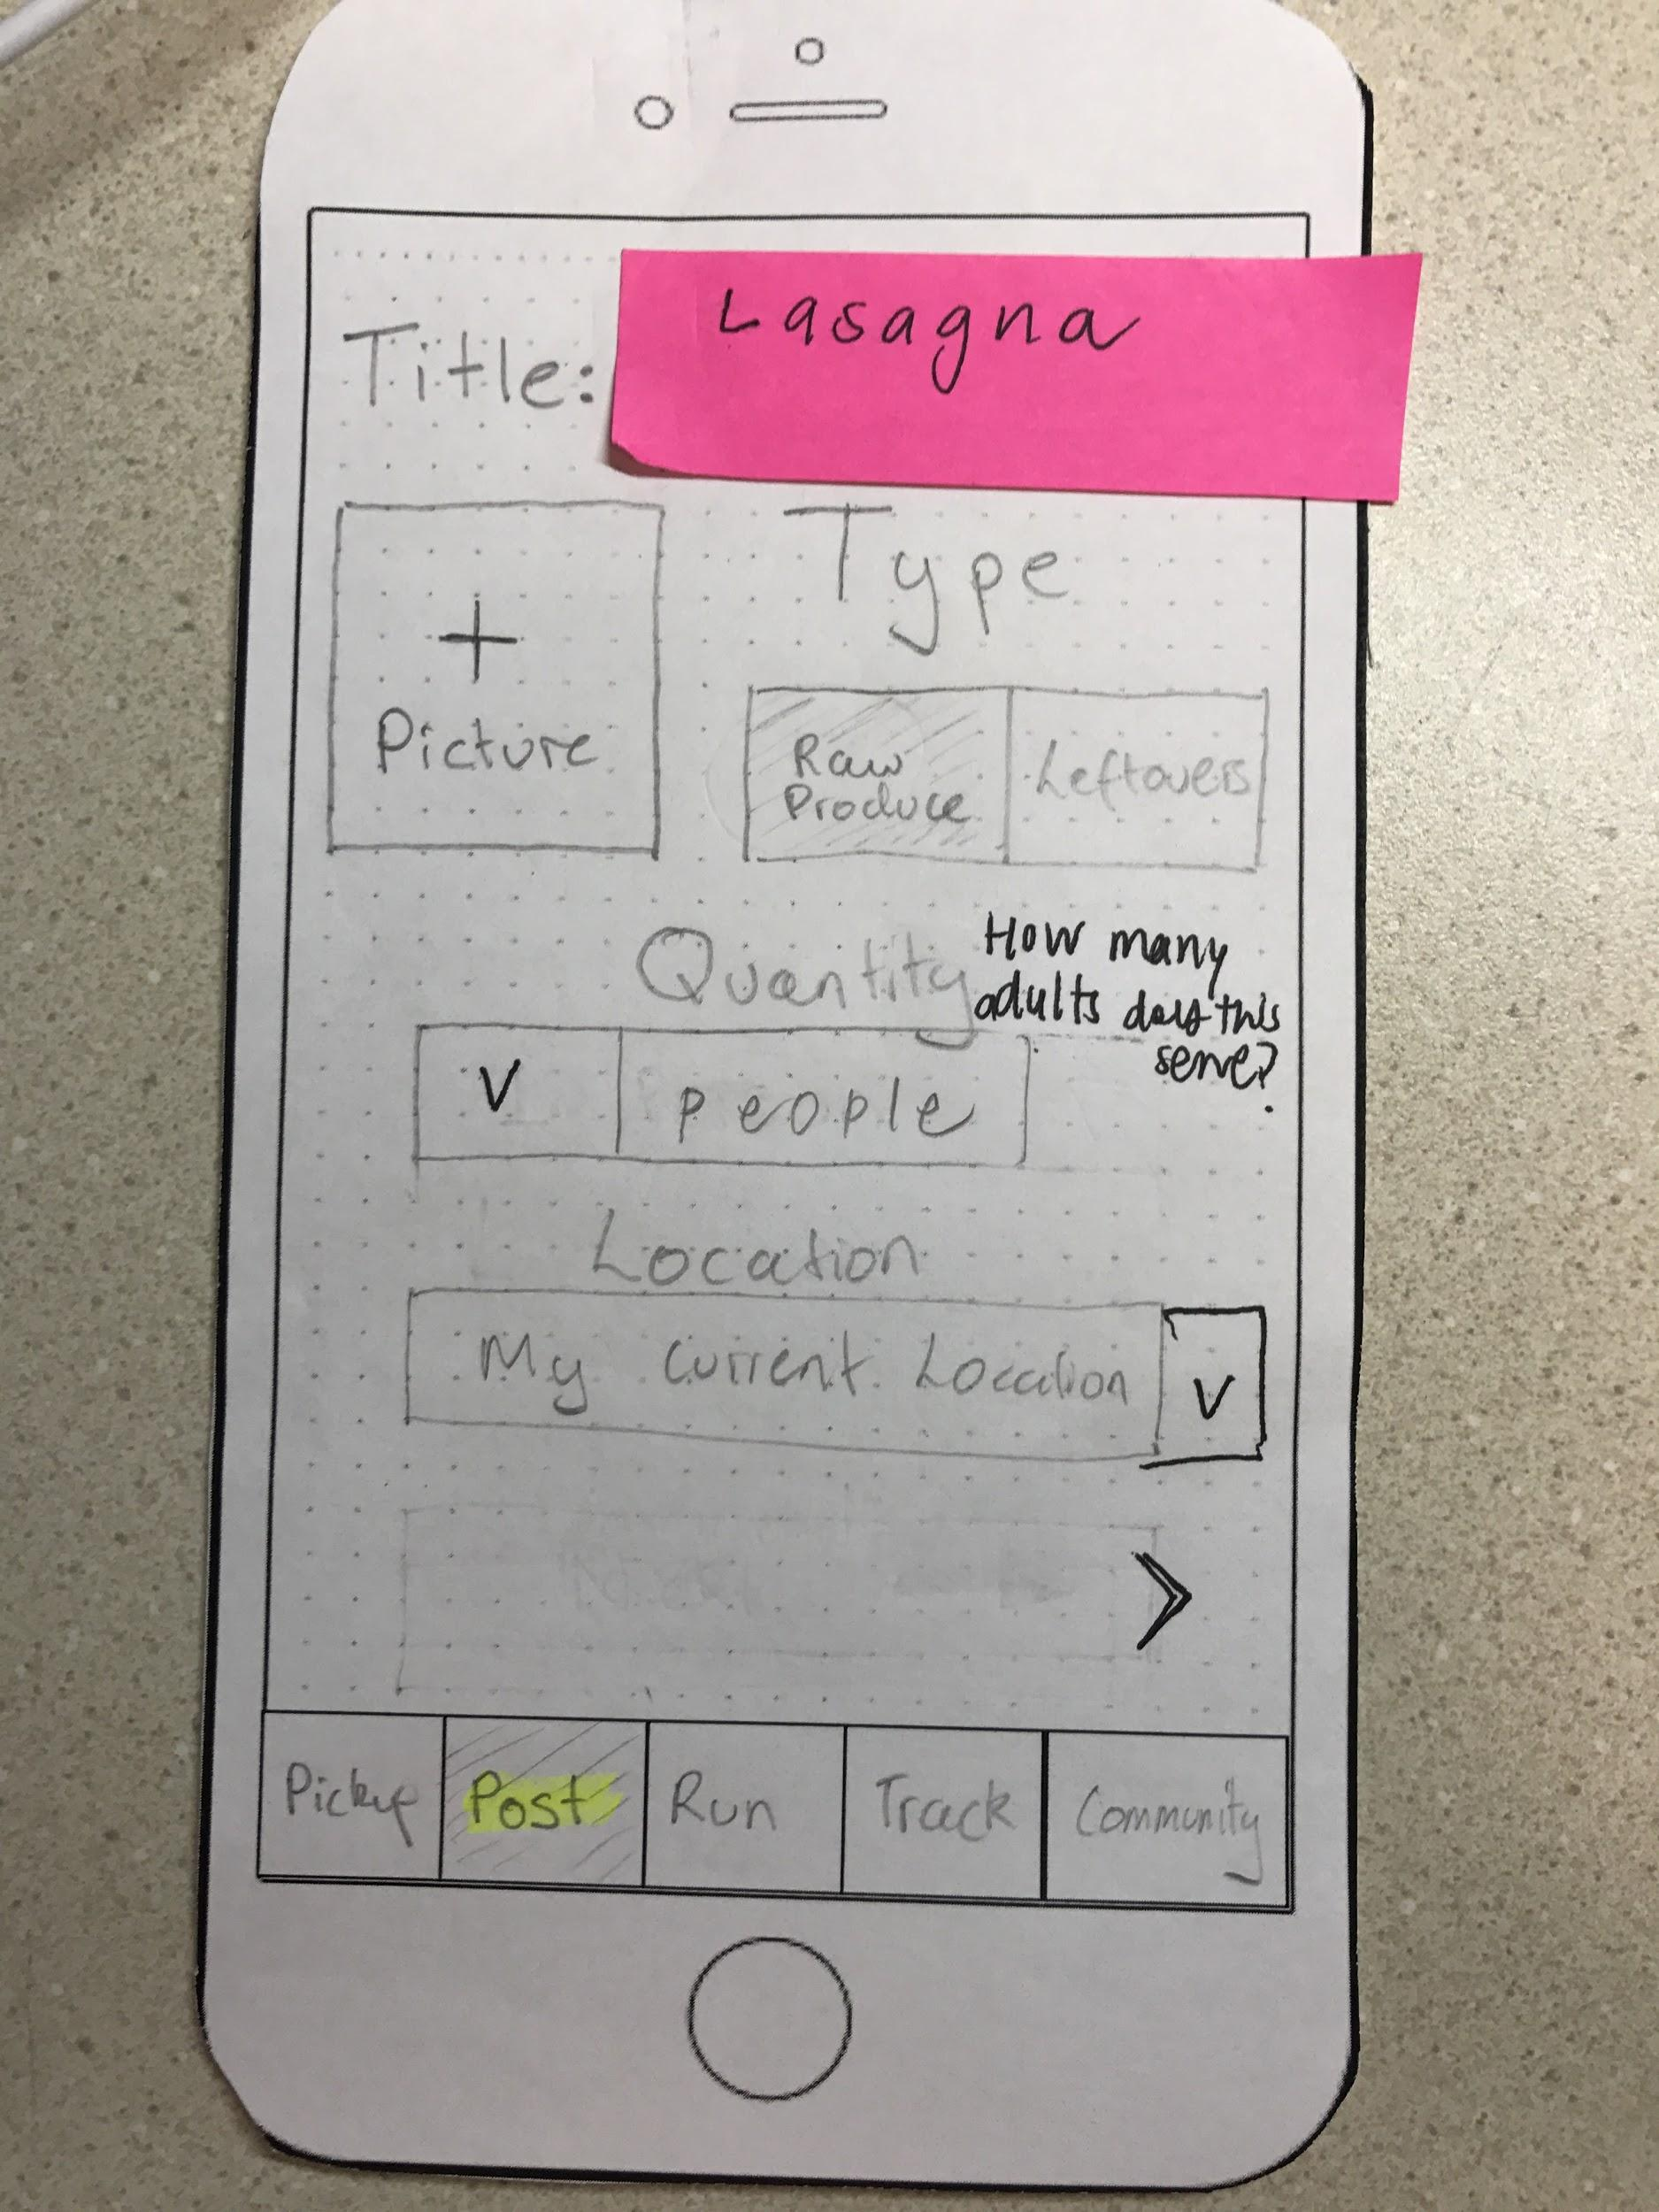 Title: Lasagna
+
Picture
Type
Raw
Produce
Leftovers
Quantity
How many
adults does this
serve?
V
people
Location
My current Location
V
>
Pickup
Post
Run
Track
Community